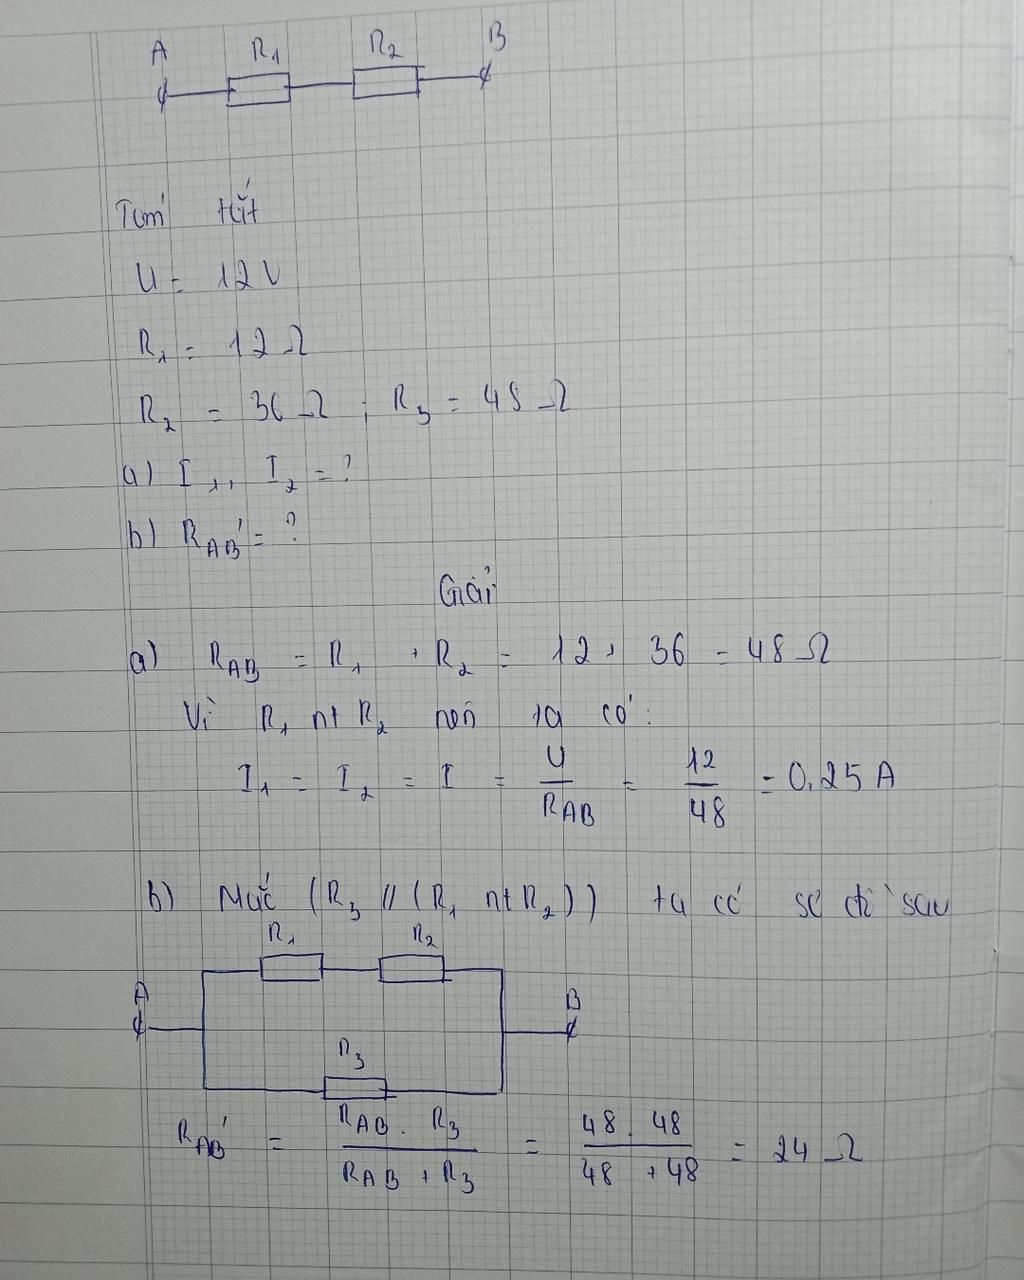 A R₁ R₂ B
Tóm tắt
U = 12V
R₁ = 12Ω
R₂ = 36Ω ; R₃ = 48Ω
a) I₁, I₂ = ?
b) R_AB' = ?
Giải
a) R_AB = R₁ + R₂ = 12 + 36 = 48Ω
Vì R₁ nt R₂ nên ta có:
I₁ = I₂ = I = U/R_AB = 12/48 = 0,25A
b) Mắc (R₃ // (R₁ nt R₂)) ta có sơ đồ sau
R₁ R₂
A B
R₃
R_AB' = (R_AB . R₃)/(R_AB + R₃) = (48 . 48)/(48 + 48) = 24Ω